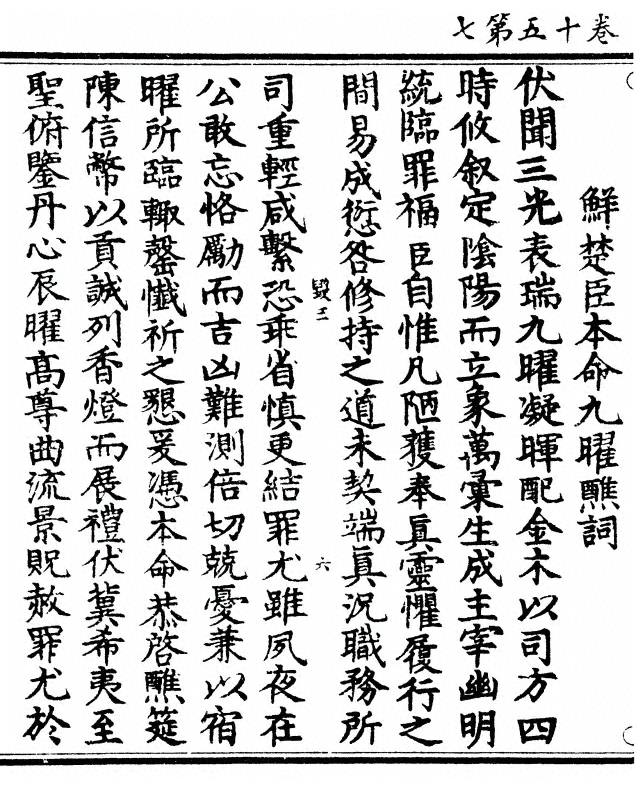 卷十五第七
鮮楚臣本命九曜醮詞
伏聞三光表瑞九曜凝暉配金木以司方四
時攸叙定陰陽而立象萬彙生成主宰幽明
統臨罪福臣自惟凡陋獲奉眞靈懼履行之
間易成愆咎修持之道未契端眞況職務所
毀三
六
司重輕咸繫恐乖省慎更結罪尤雖夙夜在
公敢忘恪勵而吉凶難測倍切兢憂兼以宿
曜所臨輙罄懺祈之懇爰憑本命恭啓醮筵
陳信幣以貢誠列香燈而展禮伏冀希夷至
聖俯鑒丹心辰曜髙尊曲流景貺赦罪尤於